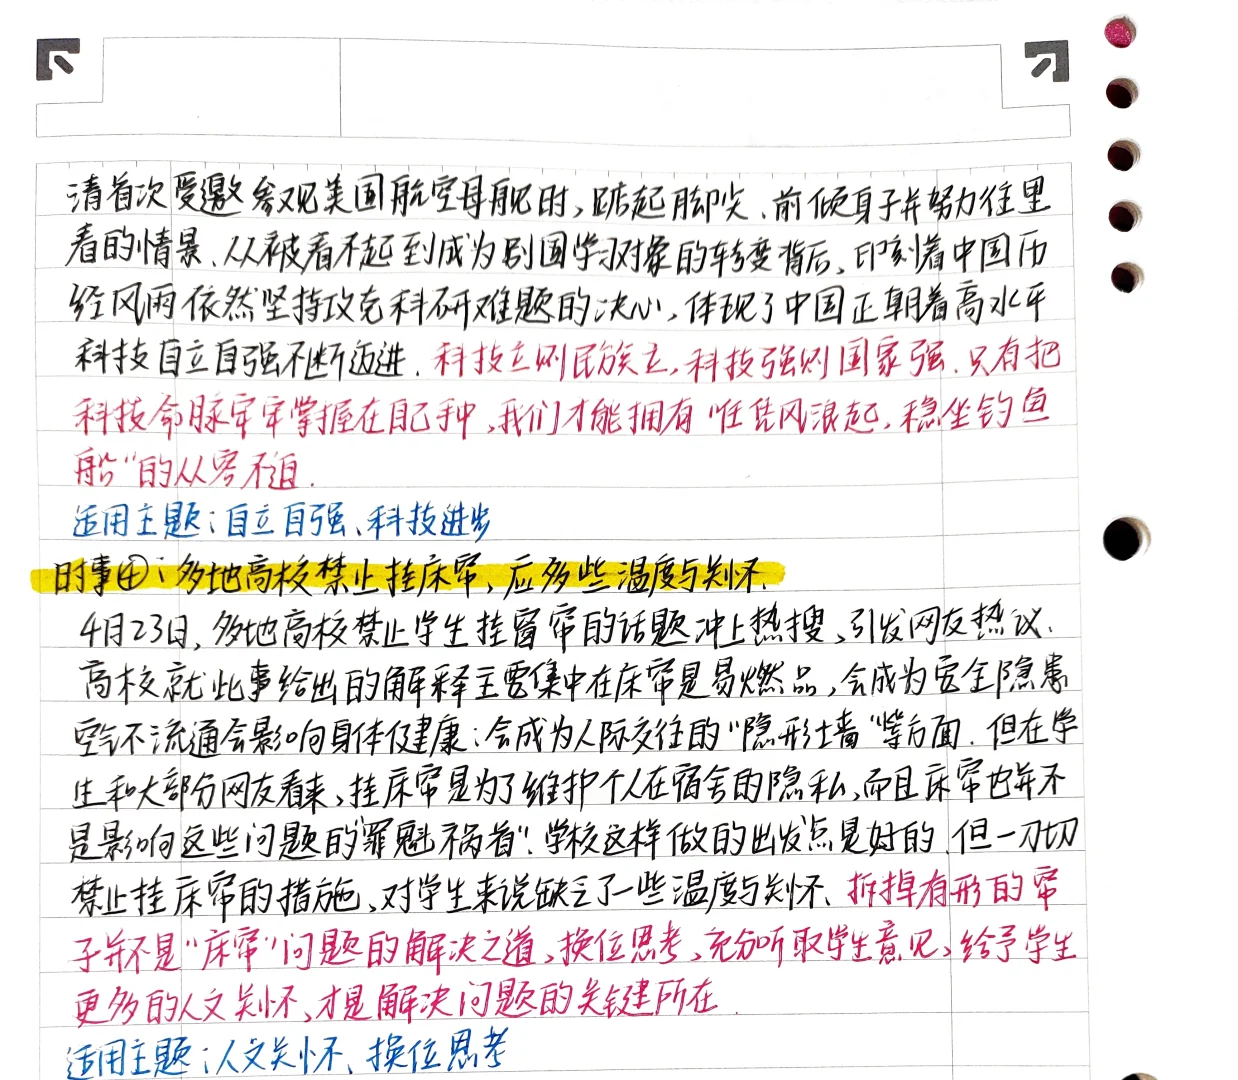 清首次受邀参观美国航空母舰时,踮起脚尖、前倾身子并努力往里
看的情景、从被看不起到成为别国学习对象的转变背后、印刻着中国历
经风雨依然坚持攻克科研难题的决心,体现了中国正朝着高水平
科技自立自强不断迈进.科技立则民族立,科技强则国家强.只有把
科技命脉牢牢掌握在自己手中,我们才能拥有"任凭风浪起,稳坐钓鱼
船"的从容不迫.
适用主题:自立自强、科技进步
时事④:多地高校禁止挂床帘,应多些温度与关怀.
4月23日,多地高校禁止学生挂窗帘的话题冲上热搜,引发网友热议.
高校就此事给出的解释主要集中在床帘是易燃品,会成为安全隐患
空气不流通会影响身体健康;会成为人际交往的"隐形墙"等方面.但在学
生和大部分网友看来,挂床帘是为了维护个人在宿舍的隐私,而且床帘也并不
是影响这些问题的"罪魁祸首".学校这样做的出发点是好的.但一刀切
禁止挂床帘的措施,对学生来说缺乏了一些温度与关怀.拆掉有形的帘
子并不是"床帘"问题的解决之道,换位思考,充分听取学生意见,给予学生
更多的人文关怀,才是解决问题的关键所在.
适用主题:人文关怀、换位思考